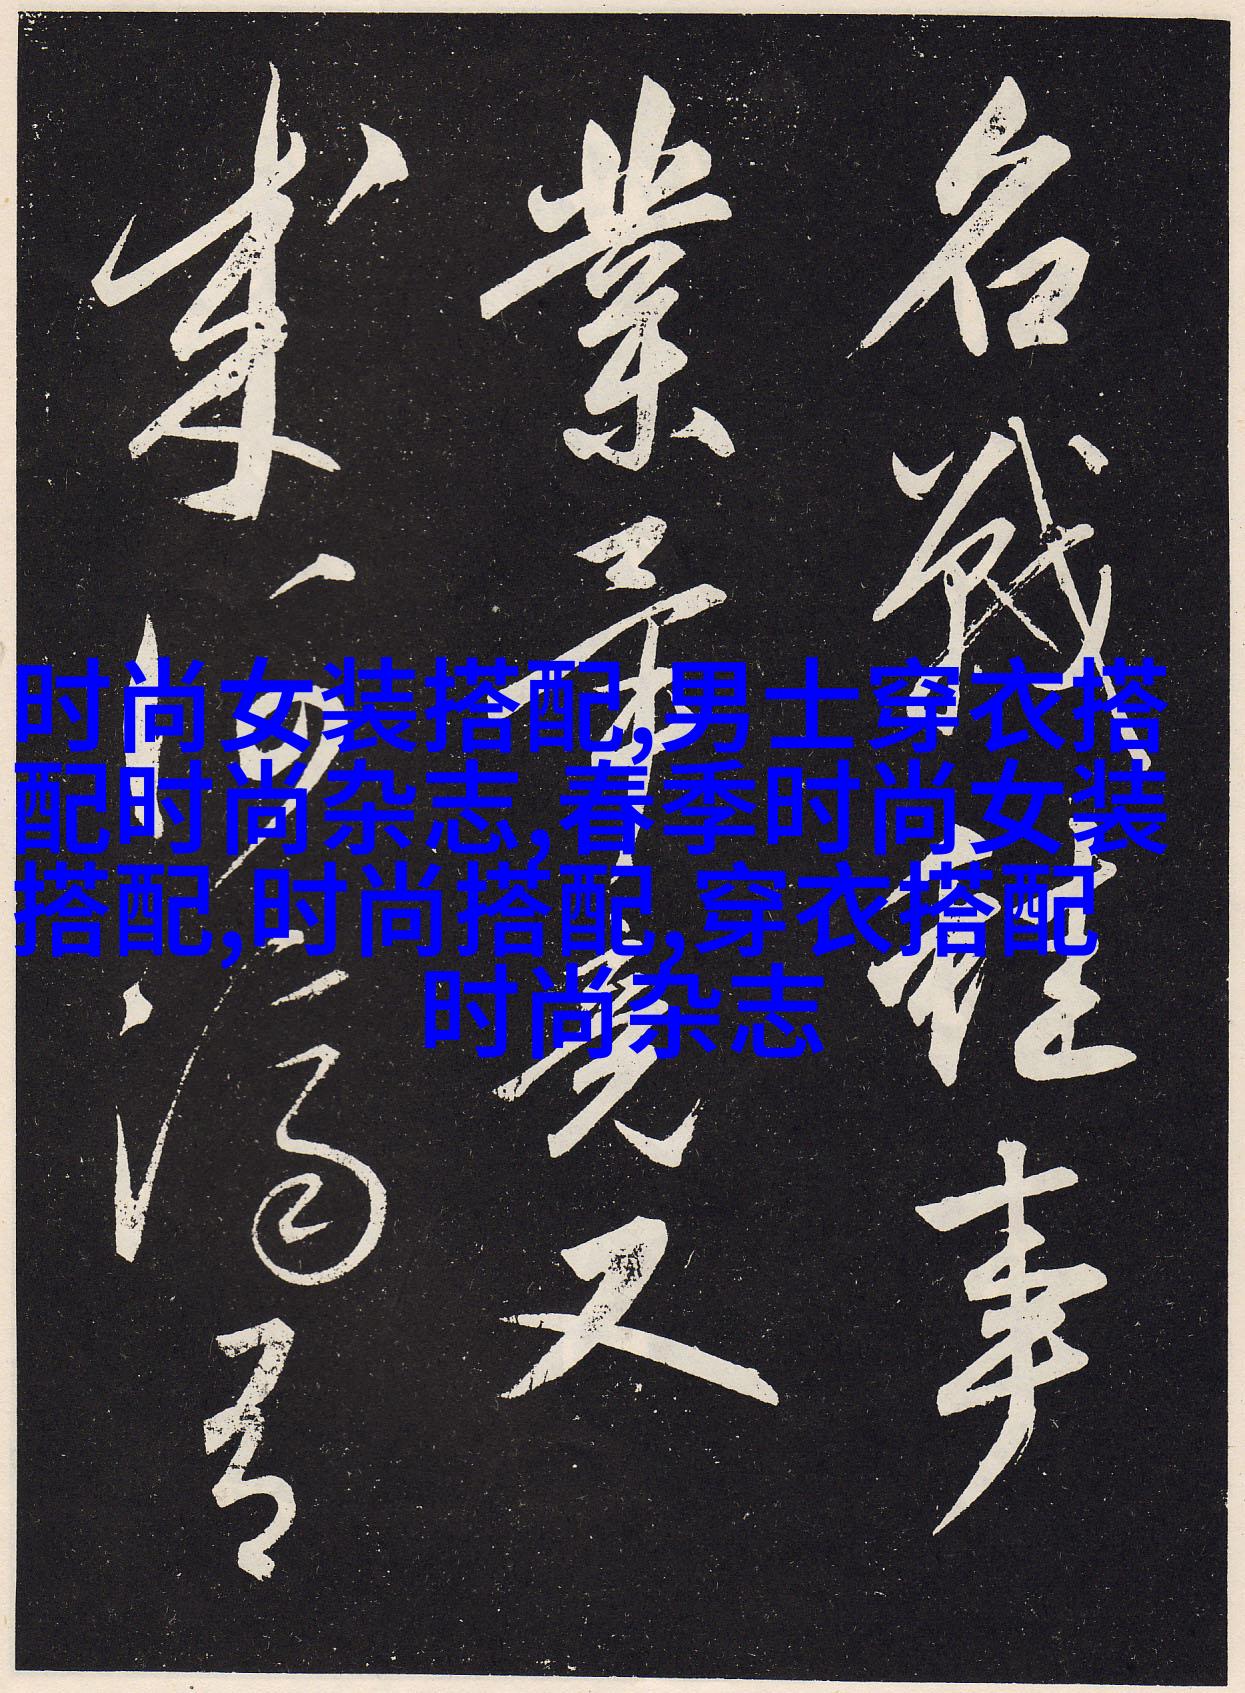 时尚女装搭配,男士穿衣搭
配时尚杂志,春季时尚女装
搭配,时尚搭配,穿衣搭配
时尚杂志
名戰事
業竟又